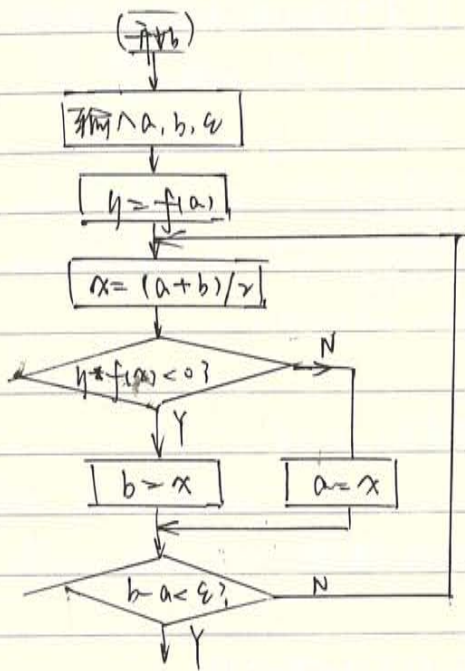 开始
输入a, b, ε
y = f(a)
x = (a+b)/2
y * f(x) < 0?
N
Y
b = x
a = x
b-a < ε?
N
Y